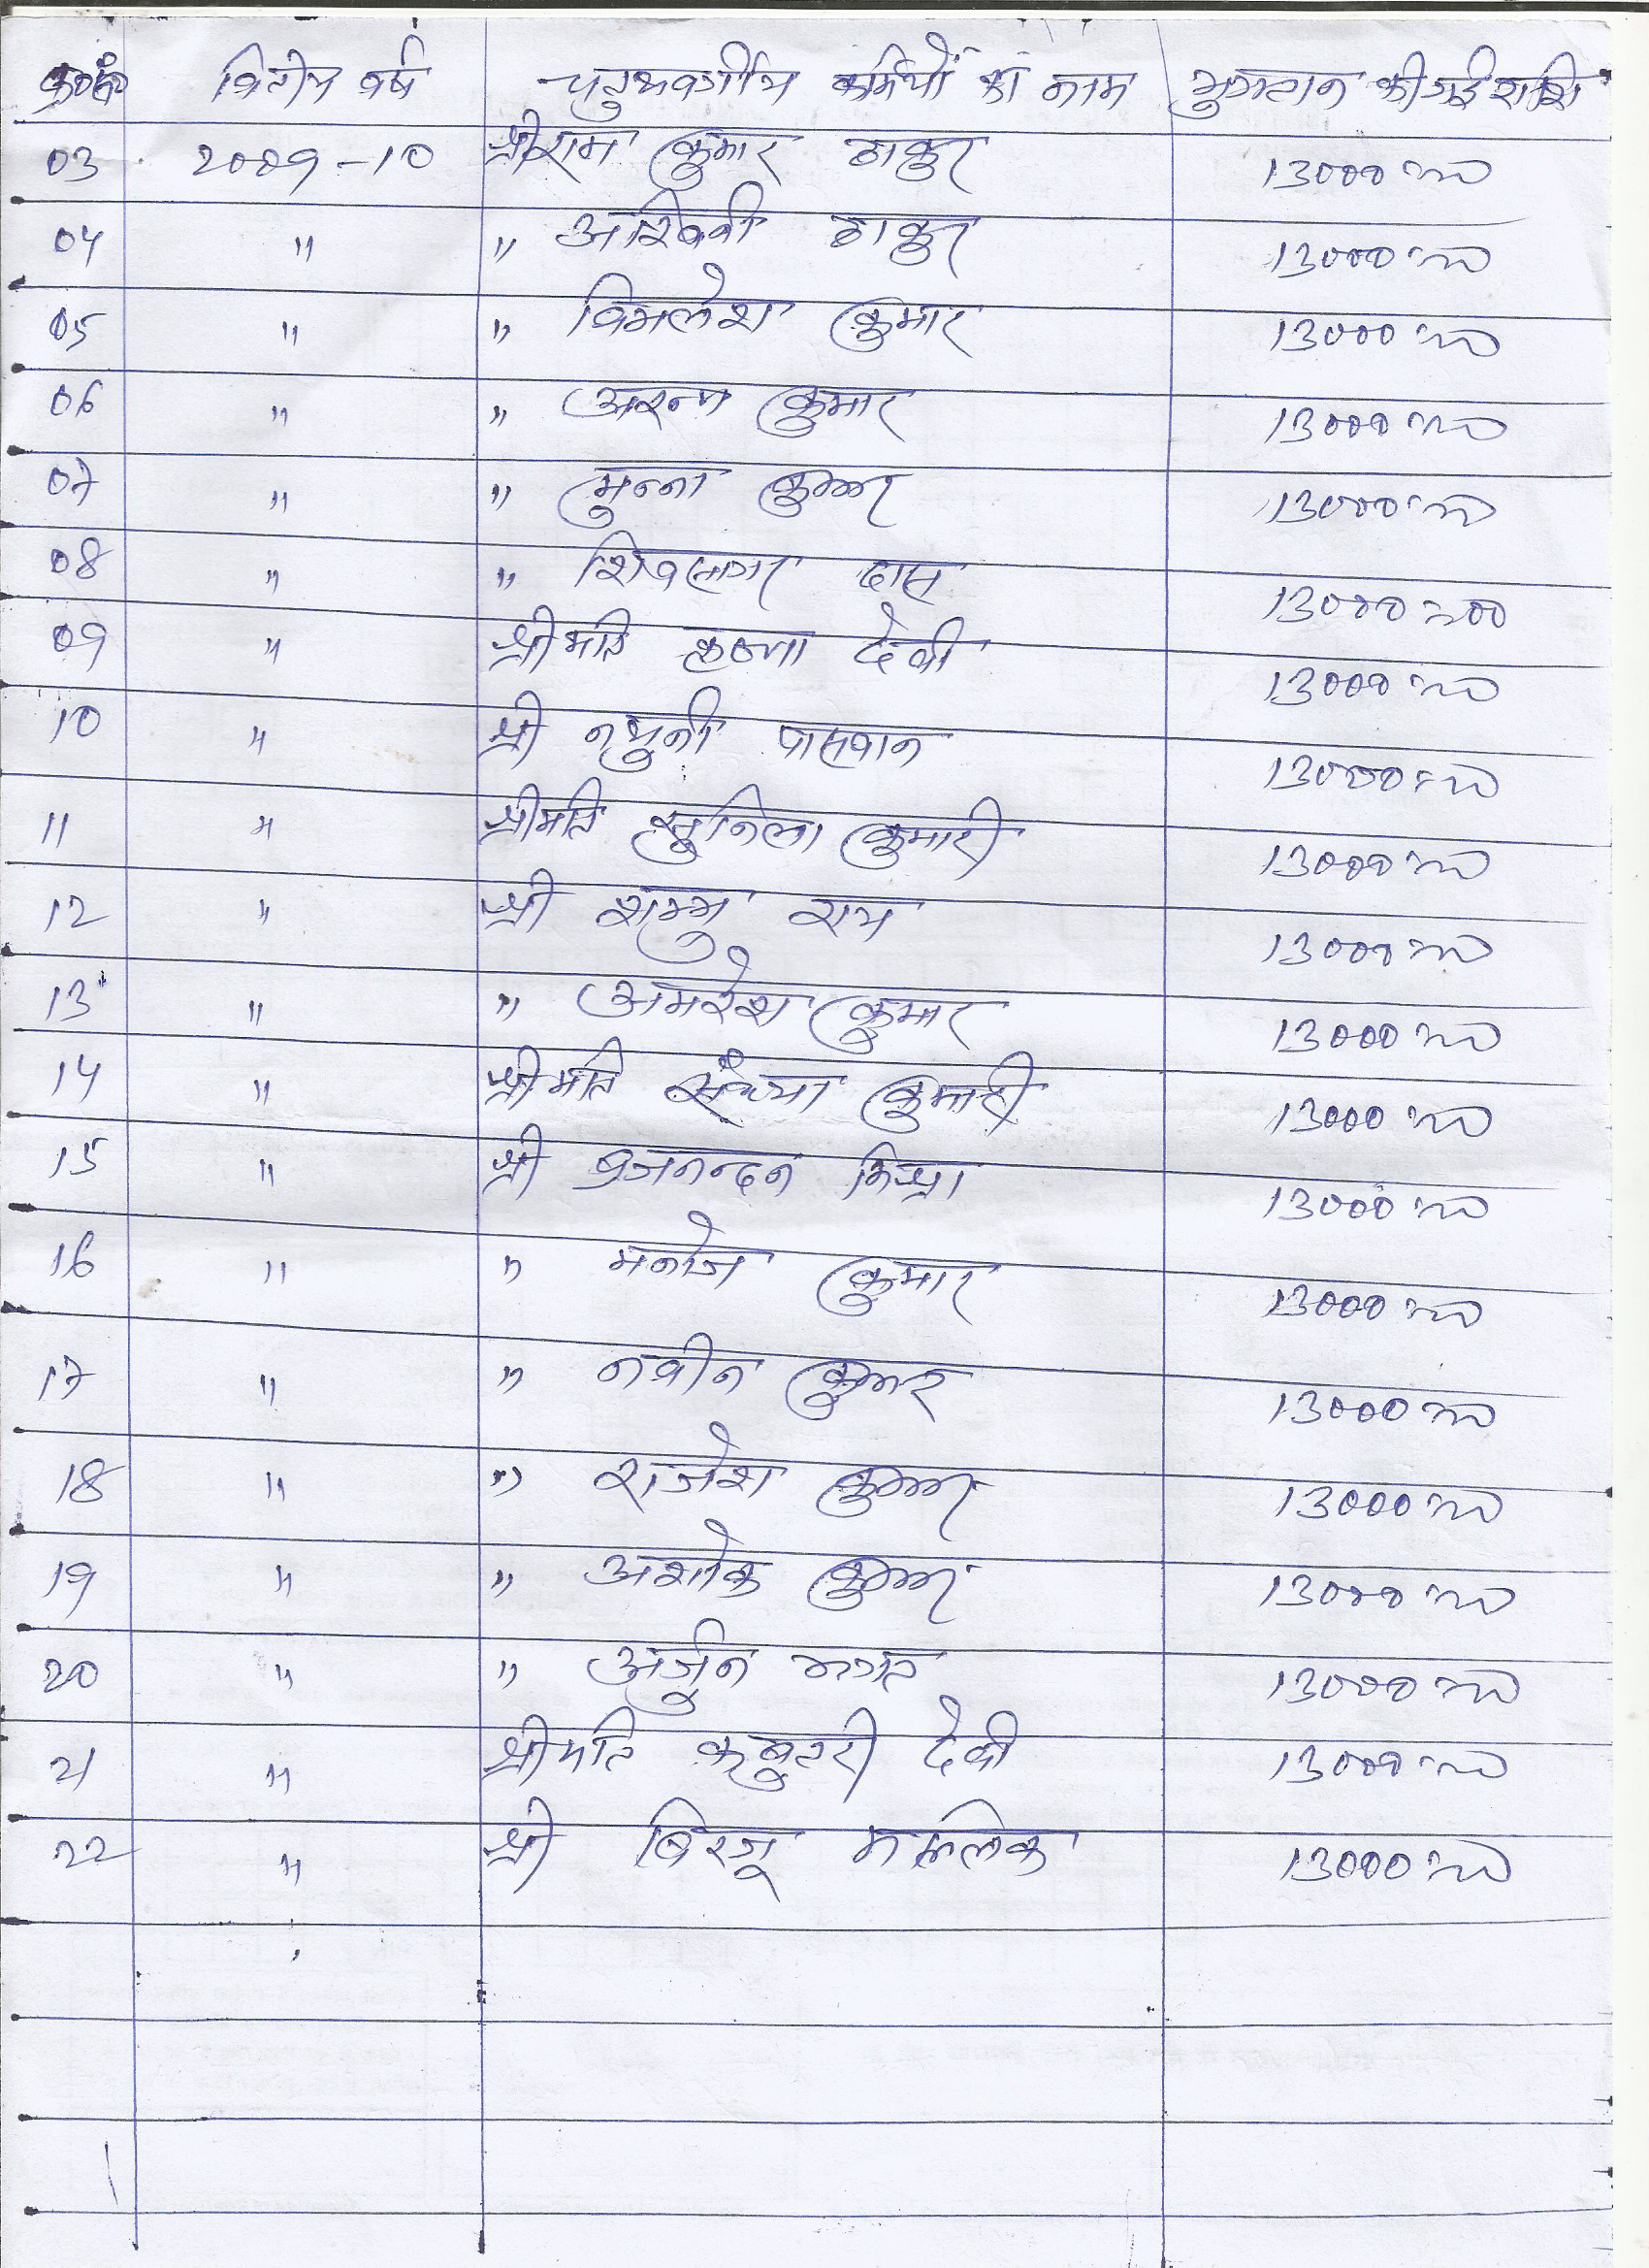 क्र०सं० वितीय वर्ष चतुथवर्गीय कर्मियों का नाम भुगतान की गई राशि
03 2009-10 श्री राम कुमार ठाकुर 13000=00
04 " " अश्विनी ठाकुर 13000=00
05 " " विमलेश कुमार 13000=00
06 " " कुमार 13000=00
07 " " मुन्ना कुमार 13000=00
08 " " शिवसागर दास 13000=00
09 " श्रीमति कृष्णा देवी 13000=00
10 " श्री नथुनी पासवान 13000=00
11 " श्रीमति सुनिला कुमारी 13000=00
12 " श्री शम्भु राय 13000=00
13 " " अमरेश कुमार 13000=00
14 " श्रीमति संध्या कुमारी 13000=00
15 " श्री ब्रजनन्दन मिश्रा 13000=00
16 " " मनोज कुमार 13000=00
17 " " नवीन कुमार 13000=00
18 " " राजेश कुमार 13000=00
19 " " अशोक कुमार 13000=00
20 " " अर्जुन भगत 13000=00
21 " श्रीमति कबुतरी देवी 13000=00
22 " श्री बिरजू मल्लिक 13000=00